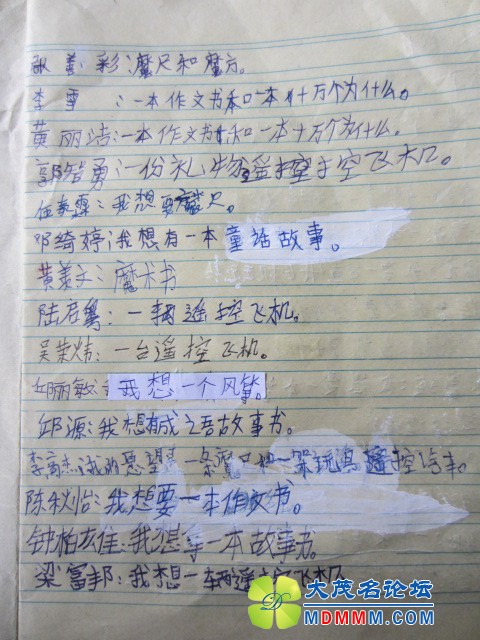 善彩:魔尺和魔方。
李雪:一本作文书和一本十万个为什么。
黄丽洁:一本作文书和一本十万个为什么。
郭智勇:一份礼物遥控手空飞机。
我想要魔尺。
邓绮婷:我想有一本童话故事。
黄美文:魔术书
陆君:一辆遥控飞机。
吴荣炜:一台遥控飞机。
邱丽敏:我想一个风筝。
邱源:我想成之语故事书。
李高杰:我的愿望一条魔尺和一架玩具遥控汽车。
陈秋怡:我想要一本作文书。
钟柏佳:我想拿一本故事书。
梁富邦:我想一辆遥控飞机
大茂名论坛
MDMMM.COM